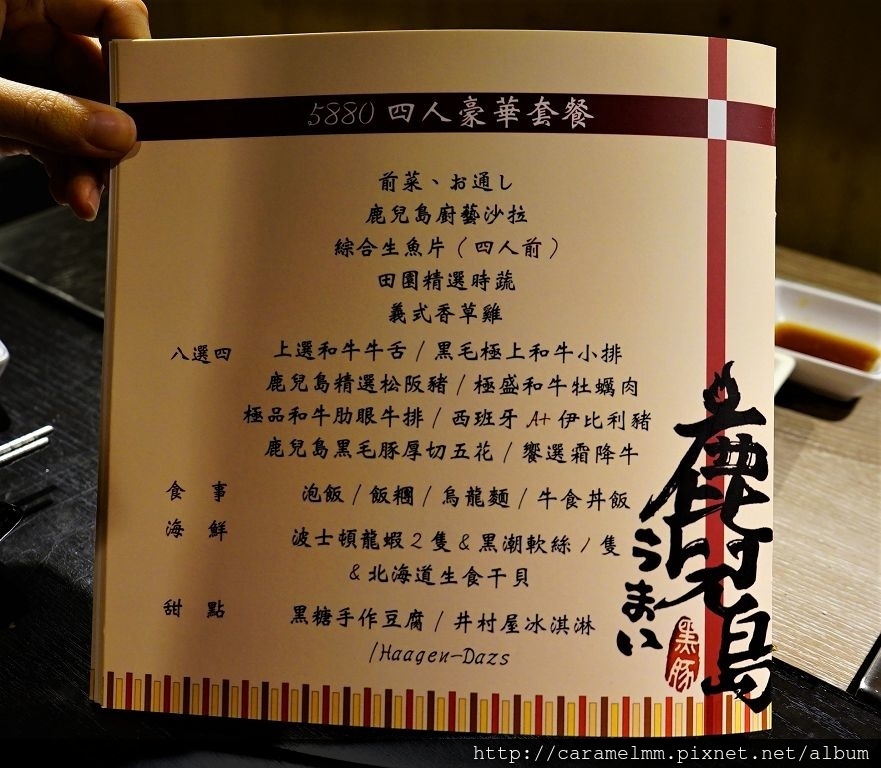 5880 四人豪華套餐
前菜、お通し
鹿兒島廚藝沙拉
綜合生魚片(四人前)
田園精選時蔬
義式香草雞
八選四 上選和牛牛舌 / 黑毛極上和牛小排
鹿兒島精選松阪豬 / 極盛和牛牡蠣肉
極品和牛肋眼牛排 / 西班牙 A+ 伊比利豬
鹿兒島黑毛豚厚切五花 / 饗選霜降牛
食 事 泡飯 / 飯糰 / 烏龍麵 / 牛食丼飯
海 鮮 波士頓龍蝦2隻 & 黑潮軟絲1隻
& 北海道生食干貝
甜 點 黑糖手作豆腐 / 井村屋冰淇淋
/Haagen-Dazs
鹿兒島
うまい
黑豚
http://caramelmm.pixnet.net/album